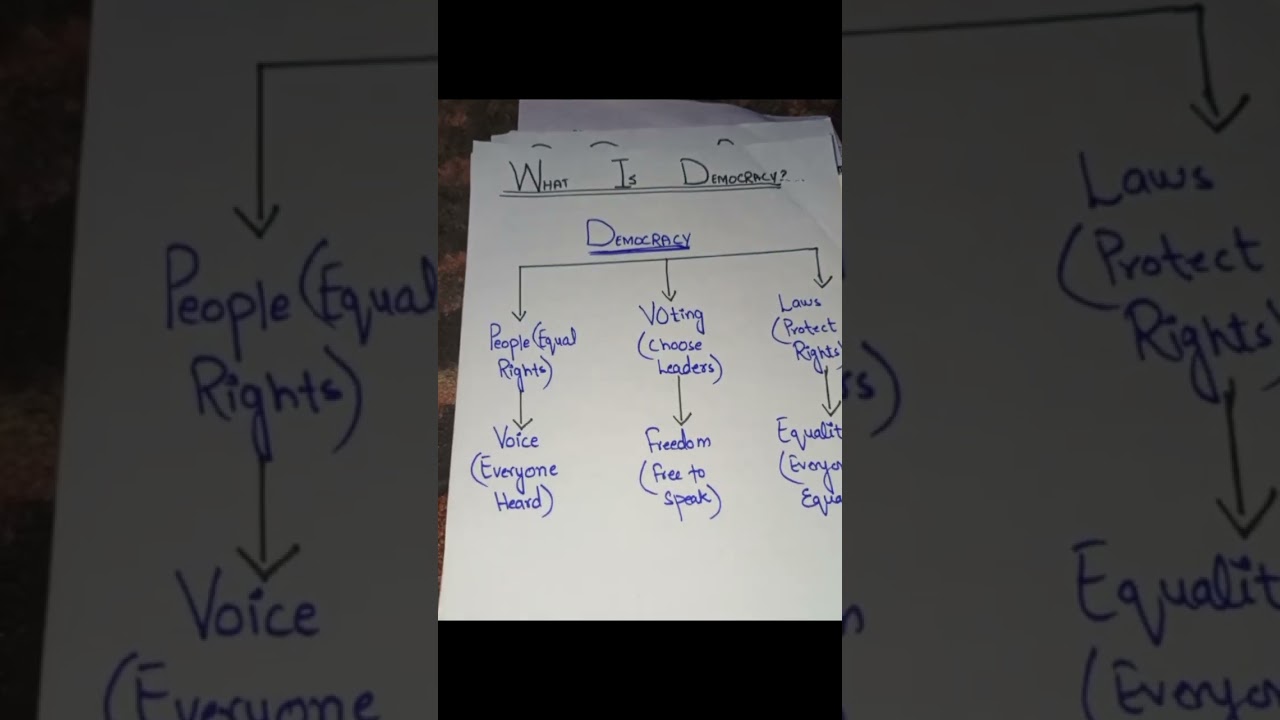 What Is Democracy?...
Democracy
People (Equal
Rights)
Voting
(Choose
Leaders)
Laws
(Protect
Rights)
Voice
(Everyone
Heard)
Freedom
(Free to
Speak)
Equalit
(Everyo
Equa